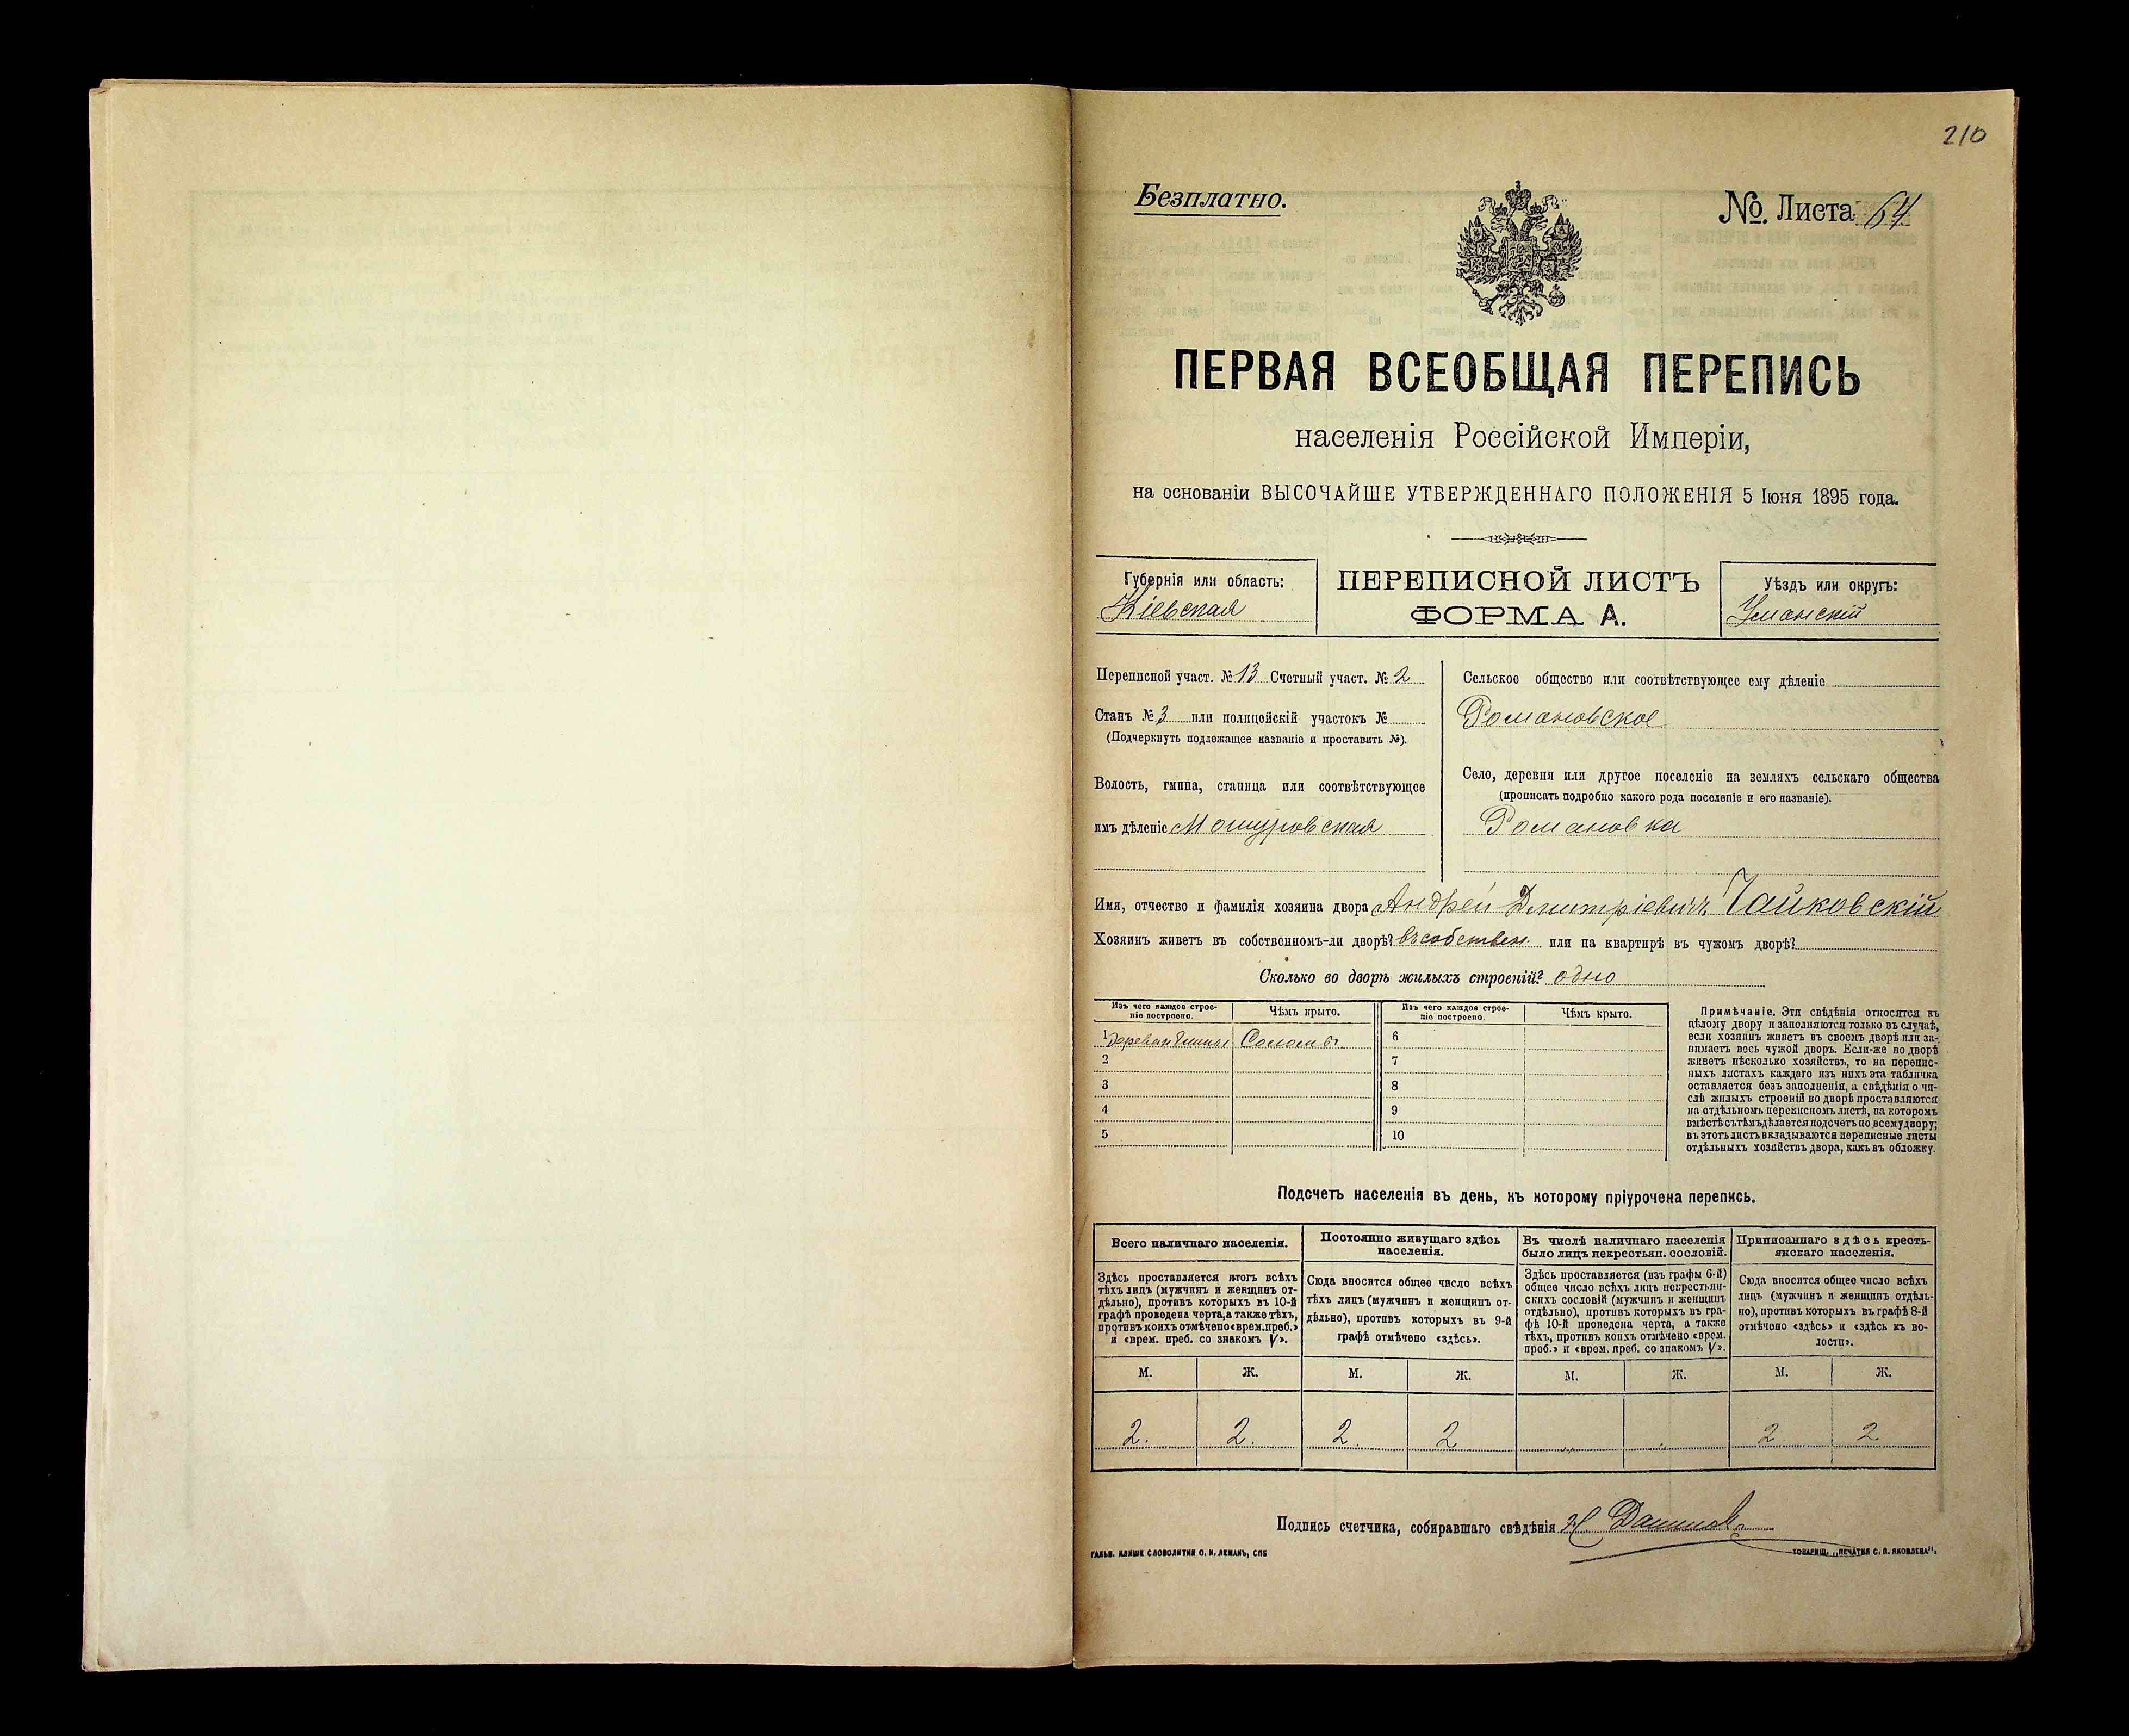 210
Безплатно.
№. Листа 64
ПЕРВАЯ ВСЕОБЩАЯ ПЕРЕПИСЬ
населенія Россійской Имперіи,
на основаніи ВЫСОЧАЙШЕ УТВЕРЖДЕННАГО ПОЛОЖЕНІЯ 5 Іюня 1895 года.
Губернія или область:
Кіевская
ПЕРЕПИСНОЙ ЛИСТЪ
ФОРМА А.
Уѣздъ или округъ:
Уманскій
Переписной участ. № 13 Счетный участ. № 2
Станъ № 3 или полицейскій участокъ №
(Подчеркнуть подлежащее названіе и проставить №).
Волость, гмина, станица или соотвѣтствующее
имъ дѣленіе Мошуровская
Сельское общество или соотвѣтствующее ему дѣленіе
Романовское
Село, деревня или другое поселеніе на земляхъ сельскаго общества
(прописать подробно какого рода поселеніе и его названіе).
Романовка
Имя, отчество и фамилія хозяина двора Андрей Дмитріевичъ Чайковскій
Хозяинъ живетъ въ собственномъ-ли дворѣ? въ собствен. или на квартирѣ въ чужомъ дворѣ?
Сколько во дворѣ жилыхъ строеній? одно
Изъ чего каждое строе-
ніе построено.
Чѣмъ крыто.
Изъ чего каждое строе-
ніе построено.
Чѣмъ крыто.
1 Солома
2
3
4
5
6
7
8
9
10
Примѣчаніе. Эти свѣдѣнія относятся къ
цѣлому двору и заполняются только въ случаѣ,
если хозяинъ живетъ въ своемъ дворѣ или за-
нимаетъ весь чужой дворъ. Если-же во дворѣ
живетъ нѣсколько хозяйствъ, то на перепис-
ныхъ листахъ каждаго изъ нихъ эта табличка
оставляется безъ заполненія, а свѣдѣнія о чи-
слѣ жилыхъ строеній во дворѣ проставляются
на отдѣльномъ переписномъ листѣ, на которомъ
вмѣстѣ съ тѣмъ дѣлается подсчетъ по всему двору;
въ этотъ листъ вкладываются переписные листы
отдѣльныхъ хозяйствъ двора, какъ въ обложку.
Подсчетъ населенія въ день, къ которому пріурочена перепись.
Всего наличнаго населенія.
Постоянно живущаго здѣсь
населенія.
Въ числѣ наличнаго населенія
было лицъ некрестьян. сословій.
Приписаннаго здѣсь кресть-
янскаго населенія.
Здѣсь проставляется итогъ всѣхъ
тѣхъ лицъ (мужчинъ и женщинъ от-
дѣльно), противъ которыхъ въ 10-й
графѣ проведена черта, а также тѣхъ,
противъ коихъ отмѣчено «врем. преб.»
и «врем. преб. со знакомъ V».
Сюда вносится общее число всѣхъ
тѣхъ лицъ (мужчинъ и женщинъ от-
дѣльно), противъ которыхъ въ 9-й
графѣ отмѣчено «здѣсь».
Здѣсь проставляется (изъ графы 6-й)
общее число всѣхъ лицъ некрестьян-
скихъ сословій (мужчинъ и женщинъ
отдѣльно), противъ которыхъ въ гра-
фѣ 10-й проведена черта, а также
тѣхъ, противъ коихъ отмѣчено «врем.
преб.» и «врем. преб. со знакомъ V».
Сюда вносится общее число всѣхъ
лицъ (мужчинъ и женщинъ отдѣль-
но), противъ которыхъ въ графѣ 8-й
отмѣчено «здѣсь» и «здѣсь къ во-
лости».
М. Ж. М. Ж. М. Ж. М. Ж.
2. 2. 2. 2 „ „ 2 2
Подпись счетчика, собиравшаго свѣдѣнія
ГАЛЬВ. КЛИШЕ СЛОВОЛИТНИ О. И. ЛЕМАНЪ, СПБ
ТОВАРИЩ. „ПЕЧАТНЯ С. П. ЯКОВЛЕВА".